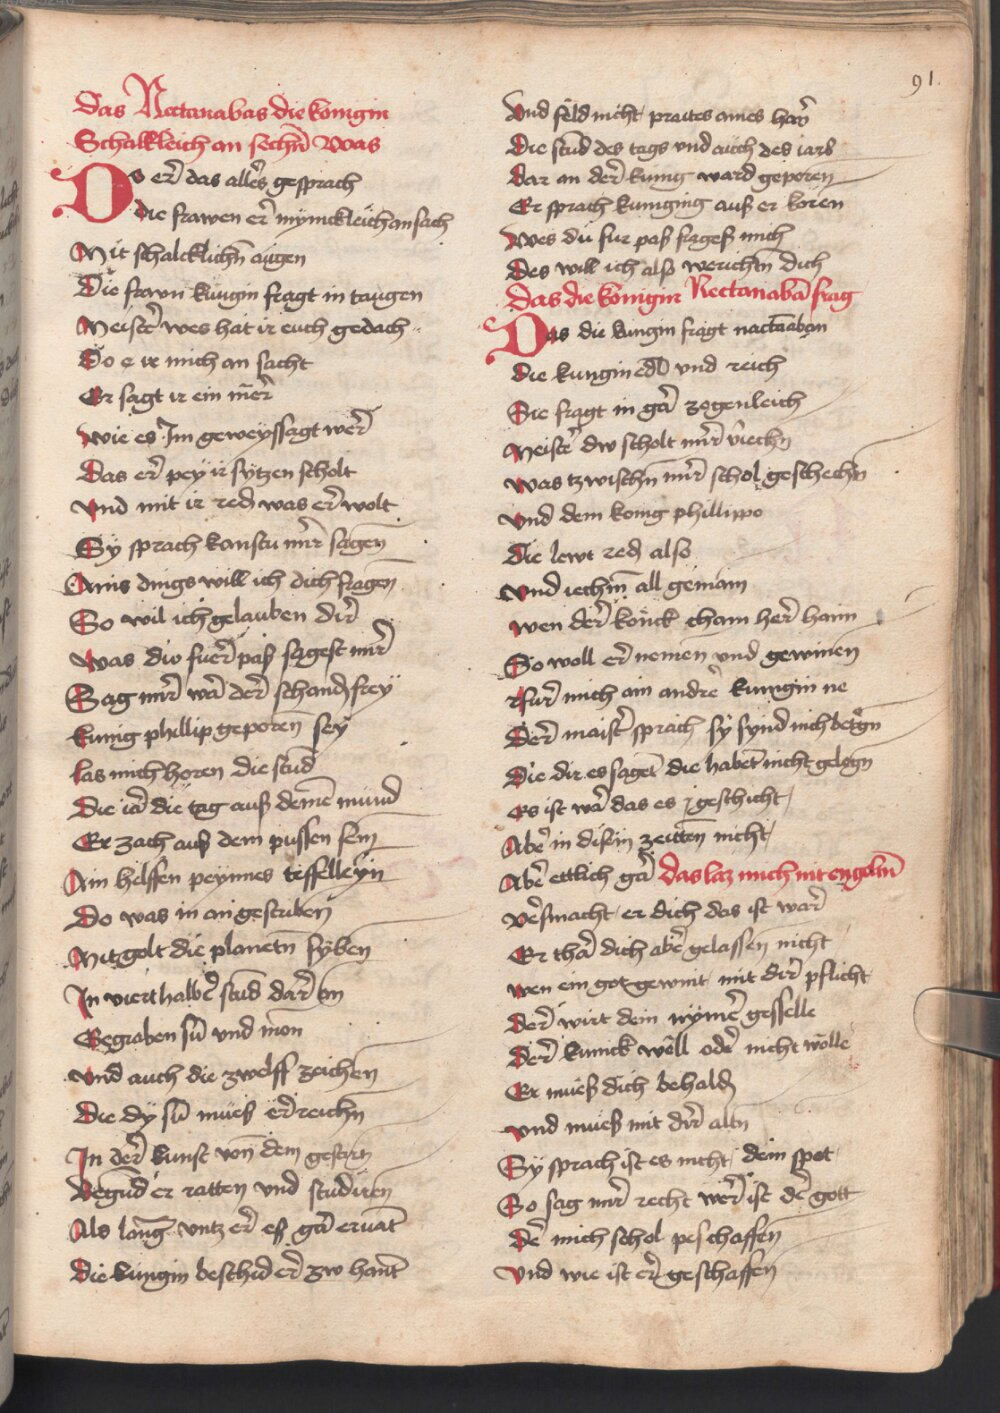 91.
Das Nectanabas die konigin
Schalkleich an sechn̄ was
Do er̄ das alles gesprach
Die frawen er̄ mynickleich an sach
Mit schalcklichn̄ augen
Die frawn kungin fragt in taugen
Meister̄ wes hat ir euch gedach
Do e ir mich an sacht
Er sagt ir ein mēr
Wie es Im geweyssagt wer̄
Das er̄ pey ir sytzen scholt
Vnd mit ir red was er̄ wolt
Sy sprach kanstu mir̄ sagen
Ains dings will ich dich fragen
So wil ich gelauben dir̄
Was diw fuer̄ pas sagest mir̄
Sag mir̄ wā der̄ schand frey
Kunig phillip geporen̄ sey
Las mich horen die stūd
Die iā die tag aus deinē mund
Er zach aus dem pussen sein
Ain helffen peynnes teffelleyn
Do was in an gescriben
Mit golt die planetn̄ syben
In vierthalbē stūd dar̄ en
Begraben sū vnd mon
Vnd auch die zwelff zeichen
Die dy sū mues er̄reichn̄
In der̄ kunst von dem gestirn
Begūd er ratten vnd studiren
Als lang vntz er̄ es gā ervāt
Die kungin beschid er̄ zw hant
Vnd seld nicht praites aines har̄
Die stūd des tags vnd auch des iars
Dar an der̄ kunig ward geporen
Er sprach kuniging aus er koren
Wes du fur pas frages mich
Des will ich also werichtn̄ dich
Das die konigin Nectanabā frag
Das die kungin fragt nactanabon
Die kungin edl vnd reich
Sie fragt in gā zogenleich
Meister̄ dw scholt mir̄ v̄iechn̄
Was tzwischn̄ mir̄ schol geschechn̄
Vnd dem konig phillippo
Die lewt red also
Vnd iechn̄ all gemain
Wen der̄ konick cham her̄ haim
So woll er̄ nemen vnd gewinen
Fur̄ mich ain andre kunigin ne
Der̄ maistr̄ sprach sy synd nich betrgn
Die dir es sagēt die habēt nicht gelogn
Es ist wā das es geschicht
Abē in disin zeitten nicht
Abē ettlich gā das laz mich nit engeltn̄
Vēsmacht er dich das ist war̄
Er thā dich abē gelassen nicht
Wen ein got gewint mit dir̄ pflicht
Der̄ wirt dein nymēr gesselle
Der̄ kunick wöll odē nicht wölle
Er mues dich behaldn̄
Vnd mues mit dir̄ altn
Sy sprach ist es nicht dein spot
So sag mir̄ recht wer̄ ist dē gott
Dē mich schol peschaffen
Vnd wie ist er̄ geschaffen